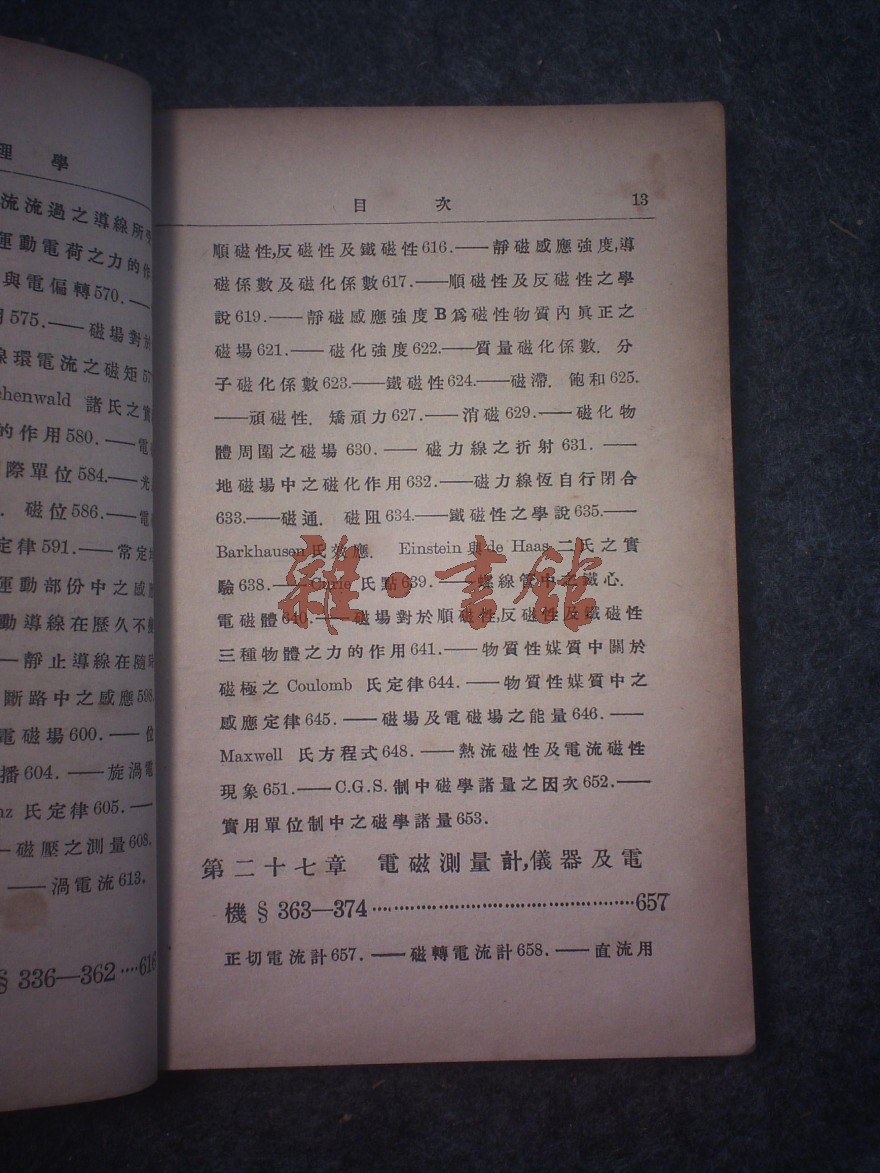 理 學
流流過之導線所
運動電荷之力的作
與電偏轉570.——
用575.——磁場對於
線環電流之磁矩57
henwald 諸氏之實
的作用580.——電
際單位584.——光
. 磁位586.——電
定律591.——常定
運動部份中之感應
動導線在歷久不變
—靜止導線在隨時
斷路中之感應598.
電磁場600.——位
播604.——旋渦電
nz 氏定律605.——
—磁壓之測量608.
——渦電流613.
§ 336—362····616
目 次 13
順磁性,反磁性及鐵磁性616.——靜磁感應強度,導
磁係數及磁化係數617.——順磁性及反磁性之學
說619.——靜磁感應強度B爲磁性物質內眞正之
磁場621.——磁化強度622.——質量磁化係數. 分
子磁化係數623.——鐵磁性624.——磁滯. 飽和625.
——頑磁性. 矯頑力627.——消磁629.——磁化物
體周圍之磁場 630.——磁力線之折射 631.——
地磁場中之磁化作用632.——磁力線恆自行閉合
633.——磁通. 磁阻634.——鐵磁性之學說635.——
Barkhausen氏效應. Einstein與de Haas 二氏之實
驗638.——Curie 氏點639.——螺線管中之鐵心.
電磁體640.——磁場對於順磁性,反磁性及鐵磁性
三種物體之力的作用641.——物質性媒質中關於
磁極之 Coulomb 氏定律644.——物質性媒質中之
感應定律645.——磁場及電磁場之能量646.——
Maxwell 氏方程式648.——熱流磁性及電流磁性
現象651.——C.G.S.制中磁學諸量之因次652.——
實用單位制中之磁學諸量653.
第二十七章 電磁測量計,儀器及電
機 § 363—374····················657
正切電流計657.——磁轉電流計658.——直流用
雜·書館